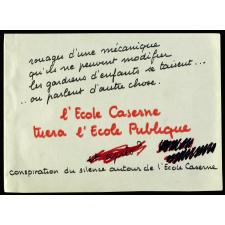 rouages d'une mécanique
qu'ils ne peuvent modifier
les gardiens d'enfants se taisent...
.. ou parlent d'autre chose..
l'Ecole Caserne
tuera l'Ecole Publique
conspiration du silence autour de l'Ecole Caserne